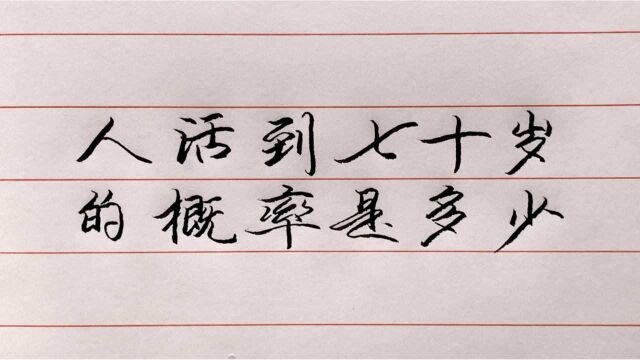 人活到七十岁
的概率是多少